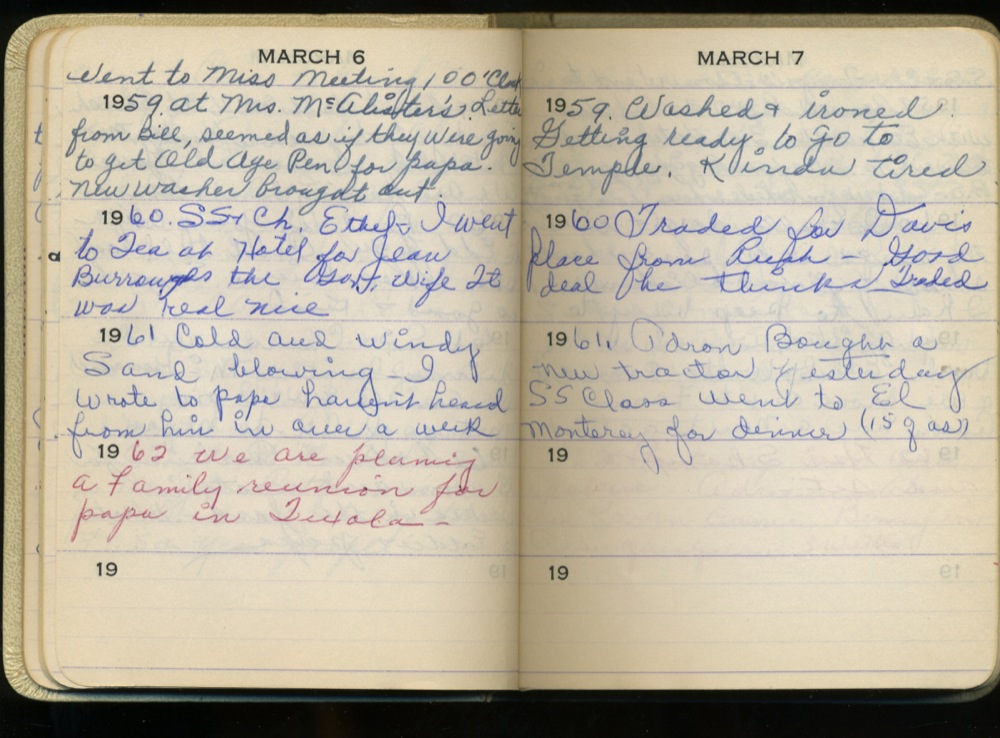 MARCH 6
Went to Miss Meeting, 10 O'Clock
1959. at Mrs. McAlister's. Letter
from Bill, seemed as if they were going
to get Old Age Pen. for papa.
New washer brought out.
1960. SS & Ch. Ethel & I went
to Tea at Hotel for Jean
Burroughs the Gov. Wife It
was real nice
1961 Cold and windy
Sand blowing I
wrote to papa haven't heard
from him in over a week
1962 we are planing
a Family reunion for
papa in Texola -
19
MARCH 7
1959. Washed & ironed.
Getting ready to go to
Temple. Kinda tired
1960 Traded for Davis
place from Rush - Good
deal he thinks Traded
1961. Aaron Bought a
new tractor yesterday
SS Class went to El
Monterey for dinner (15 of us)
19
19